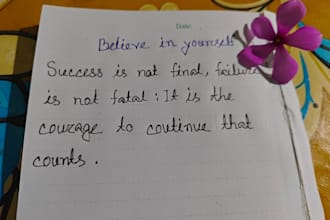 Date:
Believe in yourself
Success is not final, failure
is not fatal : It is the
courage to coutinue that
counts .